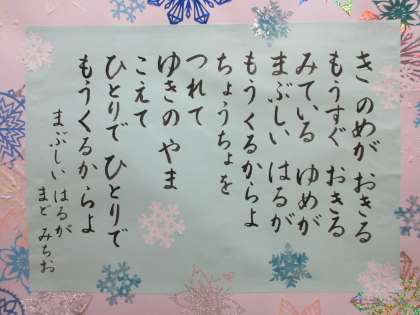 きのめが おきる
もうすぐ おきる
みている ゆめが
まぶしい はるが
もうくるからよ
ちょうちょを
つれて
ゆきの やま
こえて
ひとりで ひとりで
もうくるからよ
まぶしい はるが
まど みちお